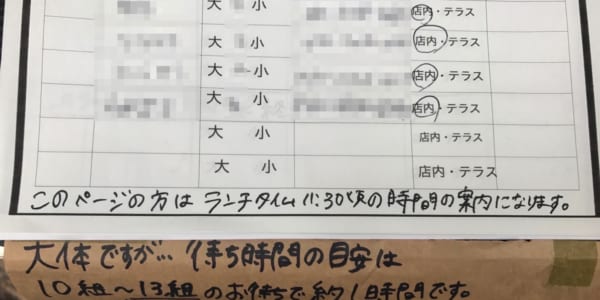 大 小 店内・テラス
大 小 店内・テラス
大 小 店内・テラス
大 小 店内・テラス
大 小 店内・テラス
大 小 店内・テラス
このページの方は ランチタイム 11:30頃の時間の案内になります。
大体ですが… 待ち時間の目安は
10組〜13組のお待ちで約1時間です。